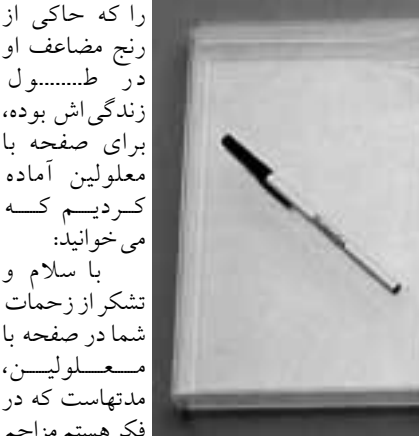 را که حاکی از
رنج مضاعف او
در طول
زندگی‌اش بوده،
برای صفحه با
معلولین آماده
کردیم که
می‌خوانید:
با سلام و
تشکر از زحمات
شما در صفحه با
معلولین،
مدتهاست که در
فکر هستم مزاحم